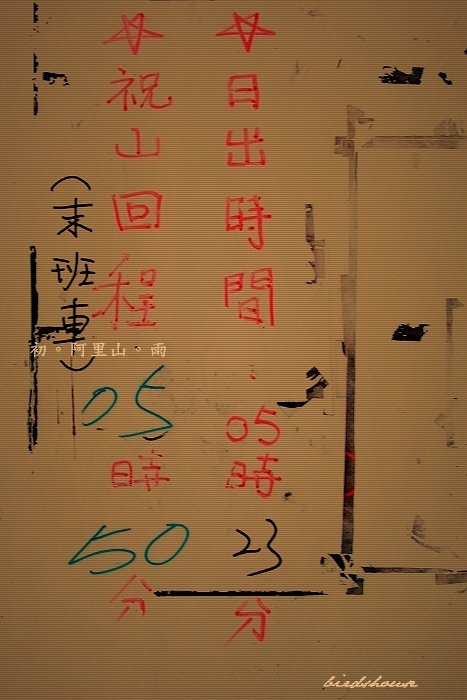 ☆日出時間:05時23分
☆祝山回程05時50分
（末班車）
初。阿里山。雨
birdshouse